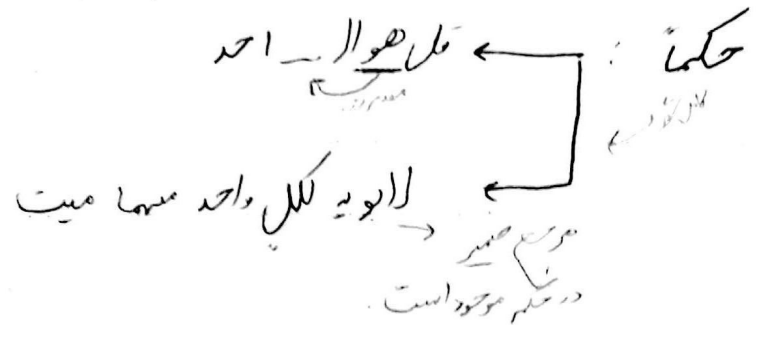 حکماً : قل هو ا... احد
لابویه لکل واحد منهما میت
مرجع ضمیر
در حکم موجود است.